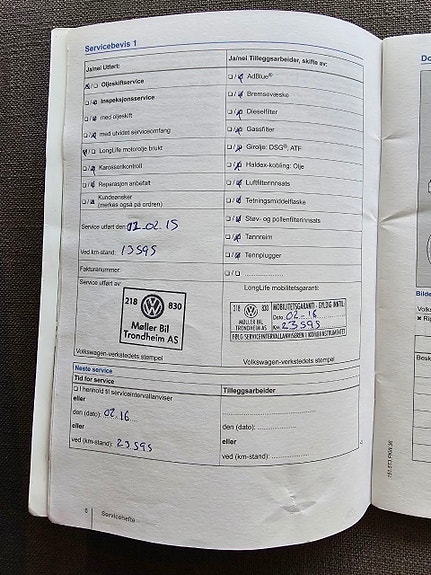 Servicebevis 1
Ja/nei Utført:
Ja/nei Tilleggsarbeider, skifte av:
Oljeskiftservice
Inspeksjonsservice
med oljeskift
med utvidet serviceomfang
LongLife motorolje brukt
Karosserikontroll
Reparasjon anbefalt
Kundeønsker
(merkes også på ordren)
AdBlue®
Bremsevæske
Dieselfilter
Gassfilter
Girolje: DSG®, ATF
Haldex-kobling: Olje
Luftfilterinnsats
Tetningsmiddelflaske
Støv- og pollenfilterinnsats
Tannreim
Tennplugger
Service utført den: 02.15
Ved km-stand: 13595
Fakturanummer:
Service utført av:
218 830
Møller Bil
Trondheim AS
Volkswagen-verkstedets stempel
LongLife mobilitetsgaranti:
218 830
MØLLER BIL
TRONDHEIM AS
MOBILITETSGARANTI - GYLDIG INNTIL
Dato 02-16
Km. 23595
FØLG SERVICEINTERVALLANVISEREN I KOMBIINSTRUMENTET
Volkswagen-verkstedets stempel
Neste service
Tid for service
I henhold til serviceintervallanviser
eller
den (dato): 02.16
eller
ved (km-stand): 23.595
Tilleggsarbeider
den (dato):
eller
ved (km-stand):
8 Servicehefte
Do
Bilde
Rip
Bosk